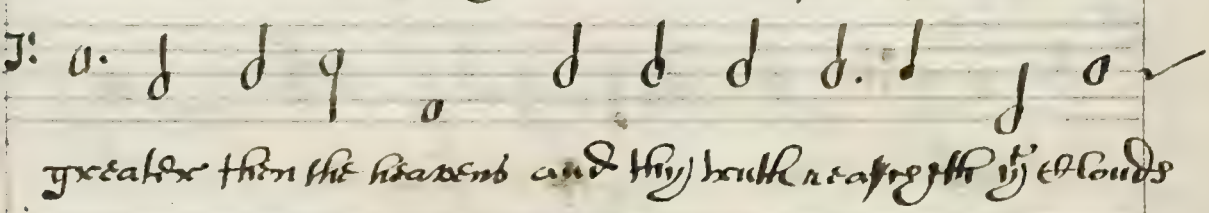 greater then the heavens and thy truth reacheth yͤ clouds